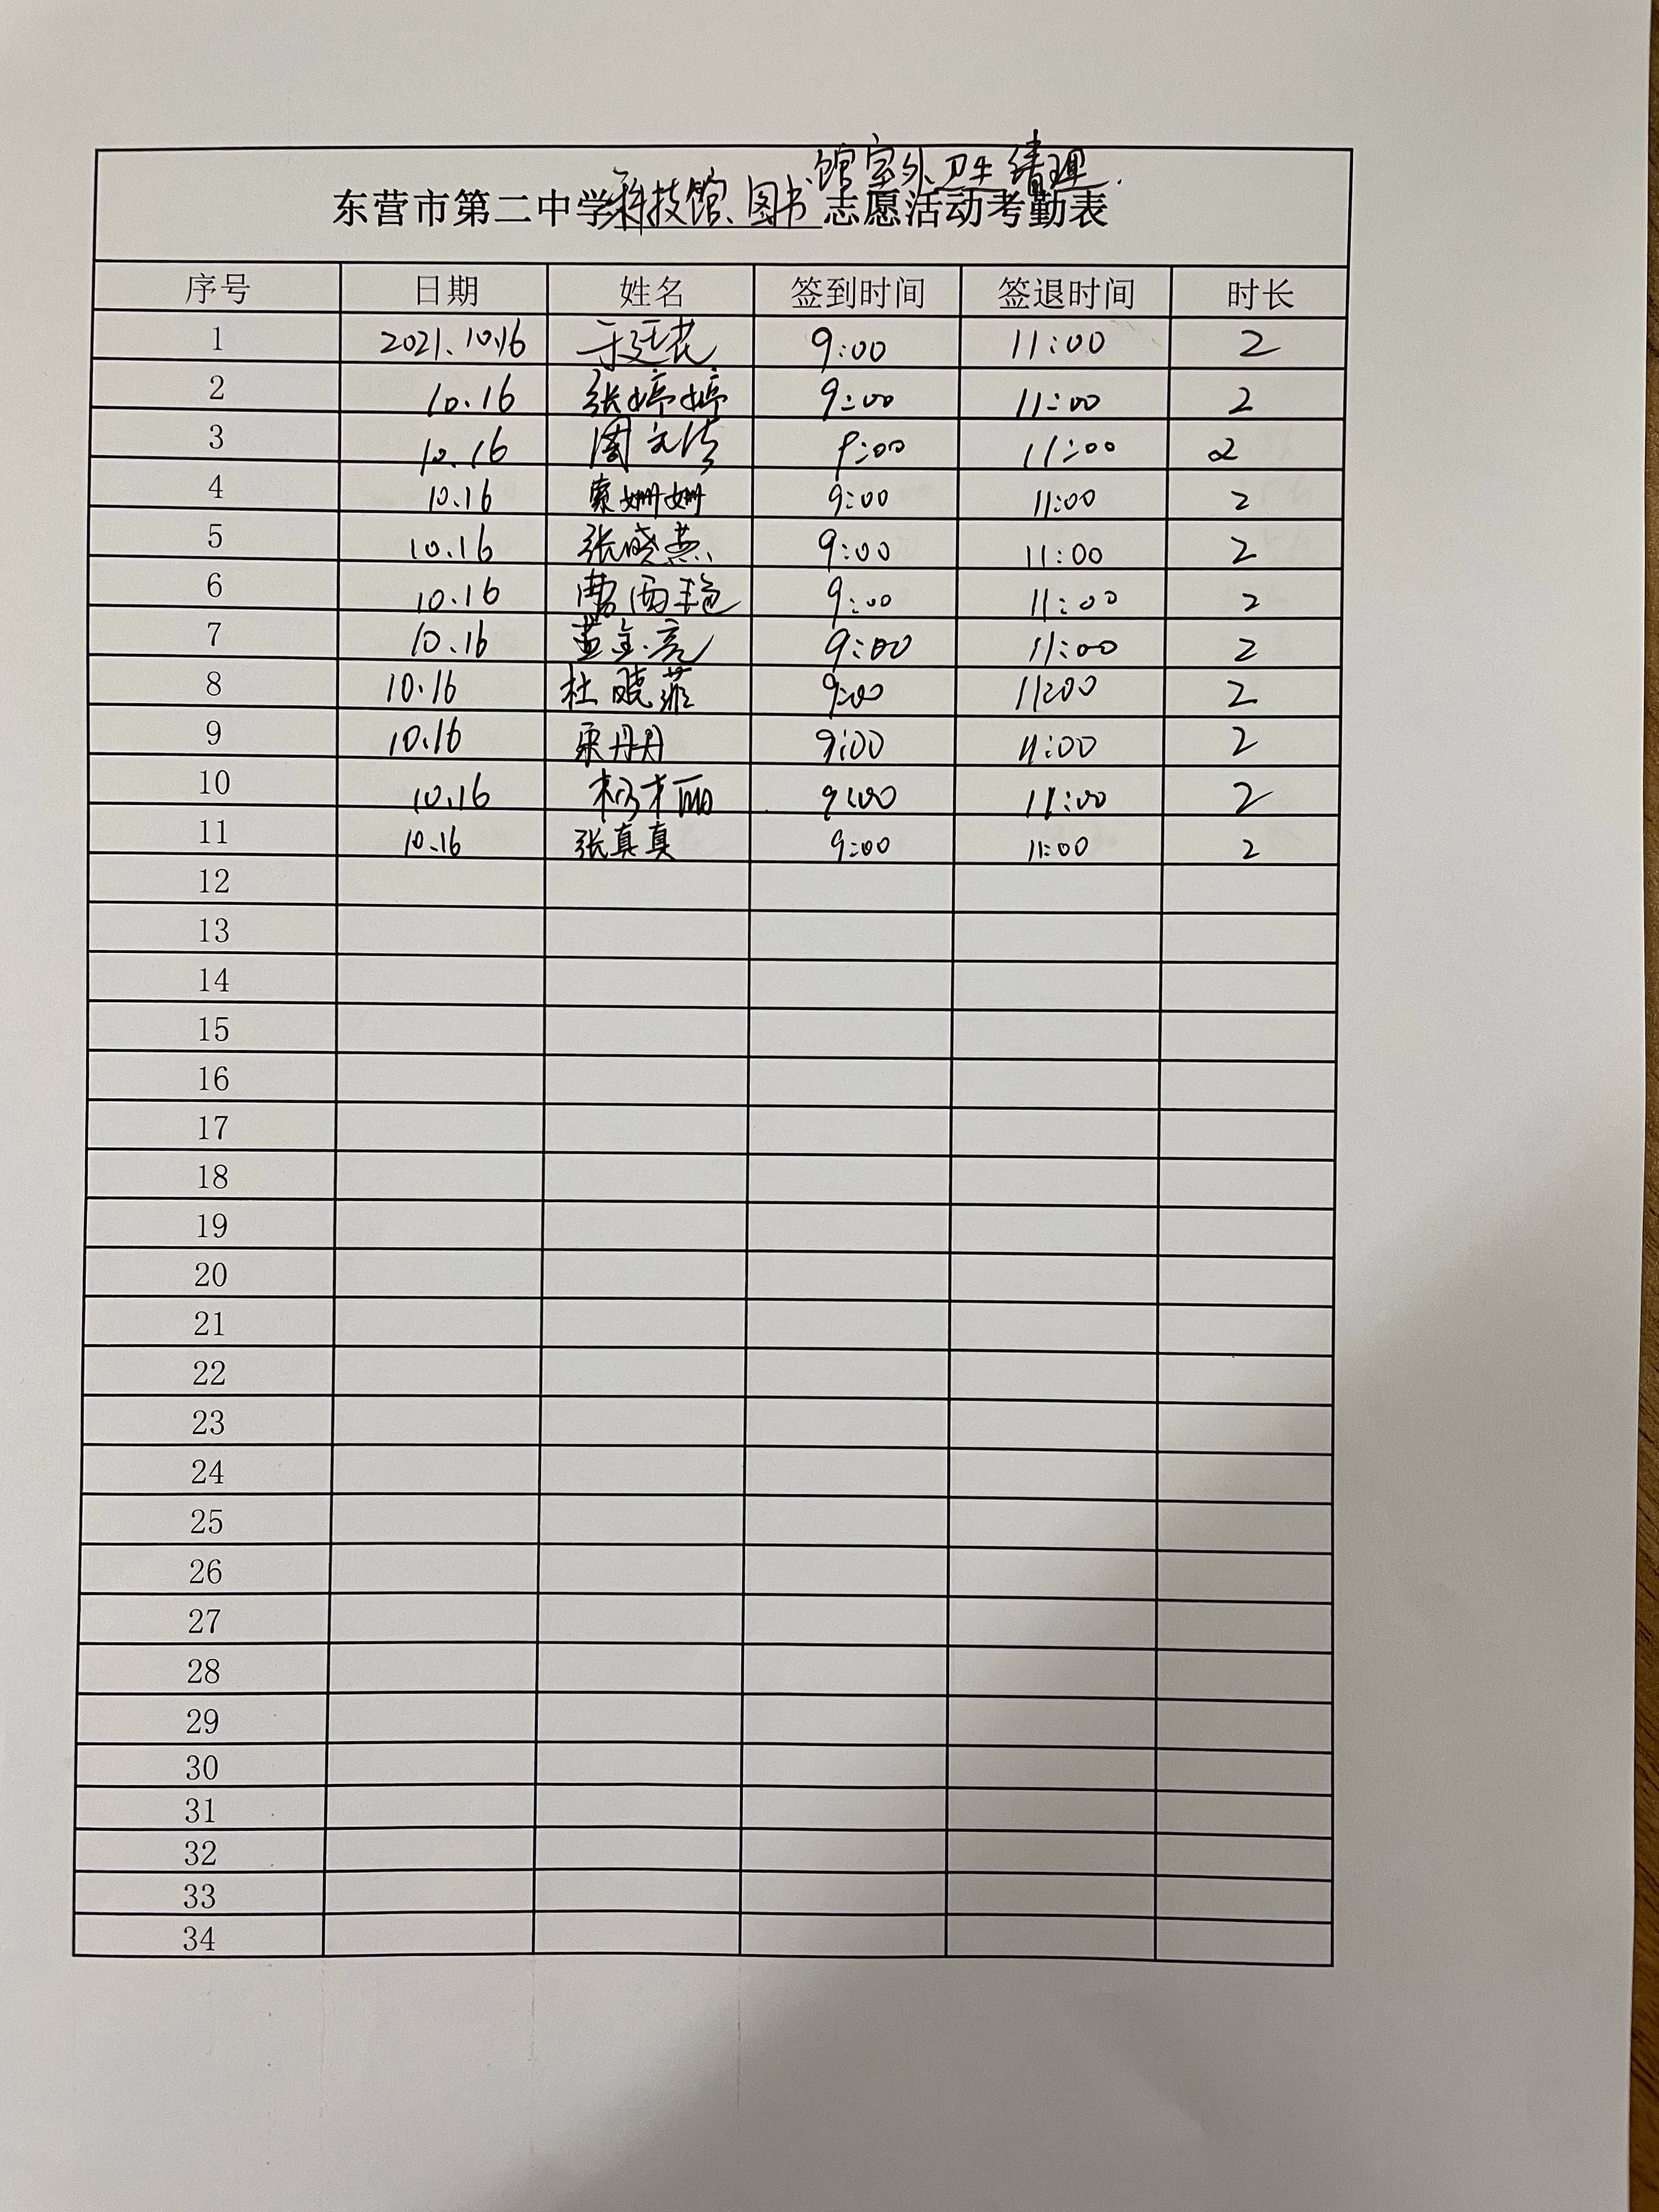 馆室外卫生清理.
东营市第二中学科技馆、图书志愿活动考勤表
序号 日期 姓名 签到时间 签退时间 时长
1 2021.10.16 于廷花 9:00 11:00 2
2 10.16 张婷婷 9:00 11:00 2
3 10.16 周 9:00 11:00 2
4 10.16 索姗姗 9:00 11:00 2
5 10.16 张晓燕 9:00 11:00 2
6 10.16 曹西艳 9:00 11:00 2
7 10.16 9:00 11:00 2
8 10.16 杜晓菲 9:00 11:00 2
9 10.16 丹丹 9:00 11:00 2
10 10.16 丽 9:00 11:00 2
11 10.16 张真真 9:00 11:00 2
12
13
14
15
16
17
18
19
20
21
22
23
24
25
26
27
28
29
30
31
32
33
34